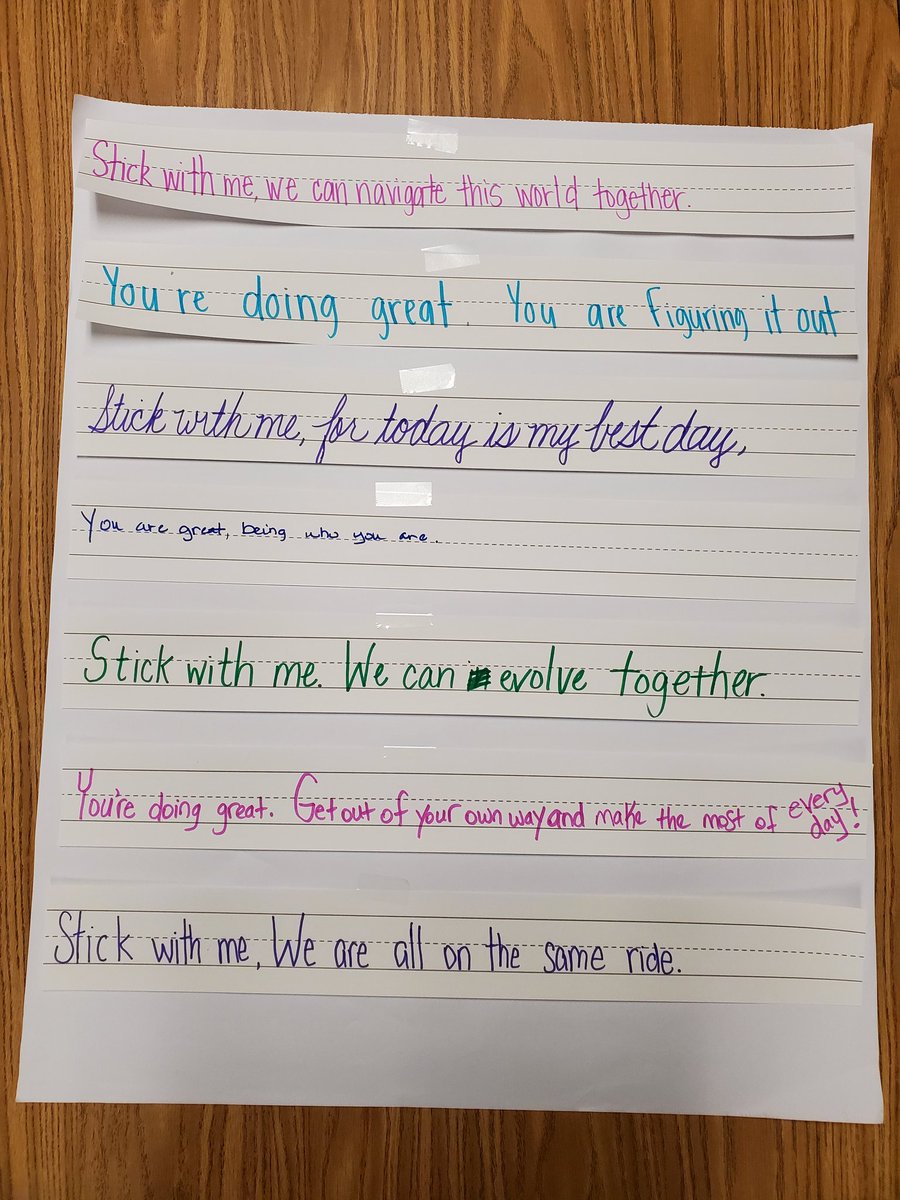 Stick with me, we can navigate this world together.
You're doing great. You are figuring it out
Stick with me, for today is my best day,
You are great, being who you are.
Stick with me. We can evolve together.
You're doing great. Get out of your own way and make the most of every day!
Stick with me, We are all on the same ride.